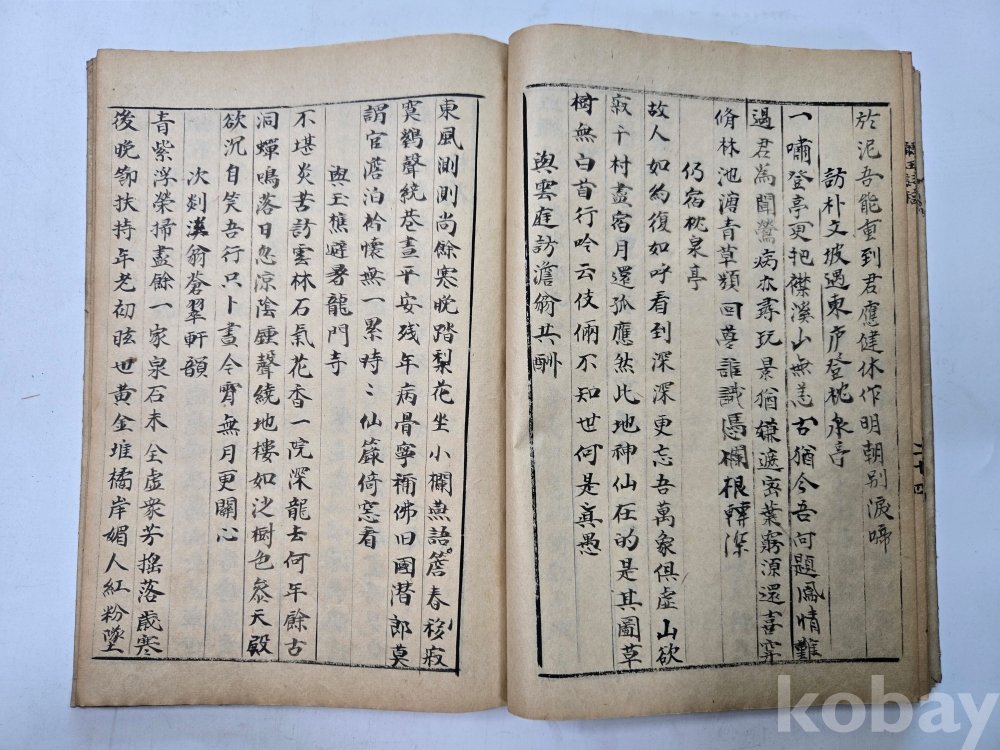 於泥吾能重到君應健休作明朝別淚啼
訪朴文坡過東庐登枕泉亭
一嘯登亭更把襟溪山無恙古猶今吾何題鳳情難
過君為聞鶯病亦尋玩景猶嫌遮密葉窮源還喜穿
脩林池溏青草類回夢誰識憑欄根轉深
仍宿枕泉亭
故人如約復如呼看到深深更忘吾萬象俱虛山欲
寂千村盡宿月還孤應然此地神仙在的是其圖草
樹無白首行吟云伎倆不知世何是真愚
與雲庭訪澹翁共酬
東風測測尚餘寒晚踏梨花坐小欄燕語簷春移寂
寞鶴聲繞巷晝平安残年病骨寧禰佛旧國潛郎莫
謂官澹泊衿懷無一累時〻仙簾倚窓看
與玉樵避暑龍門寺
不堪炎苦訪雲林石氣花香一院深龍去何年餘古
洞蟬鳴落日忽凉陰鍾聲繞地樓如泛樹色叅天殿
欲沉自笑吾行只卜晝今宵無月更關心
次剡溪翁蒼翠軒韻
青紫浮榮掃盡餘一家泉石未全虛衆芳搖落歲寒
後晚節扶持年老初眩世黃金堆橘岸媚人紅粉墜
二十四
kobay